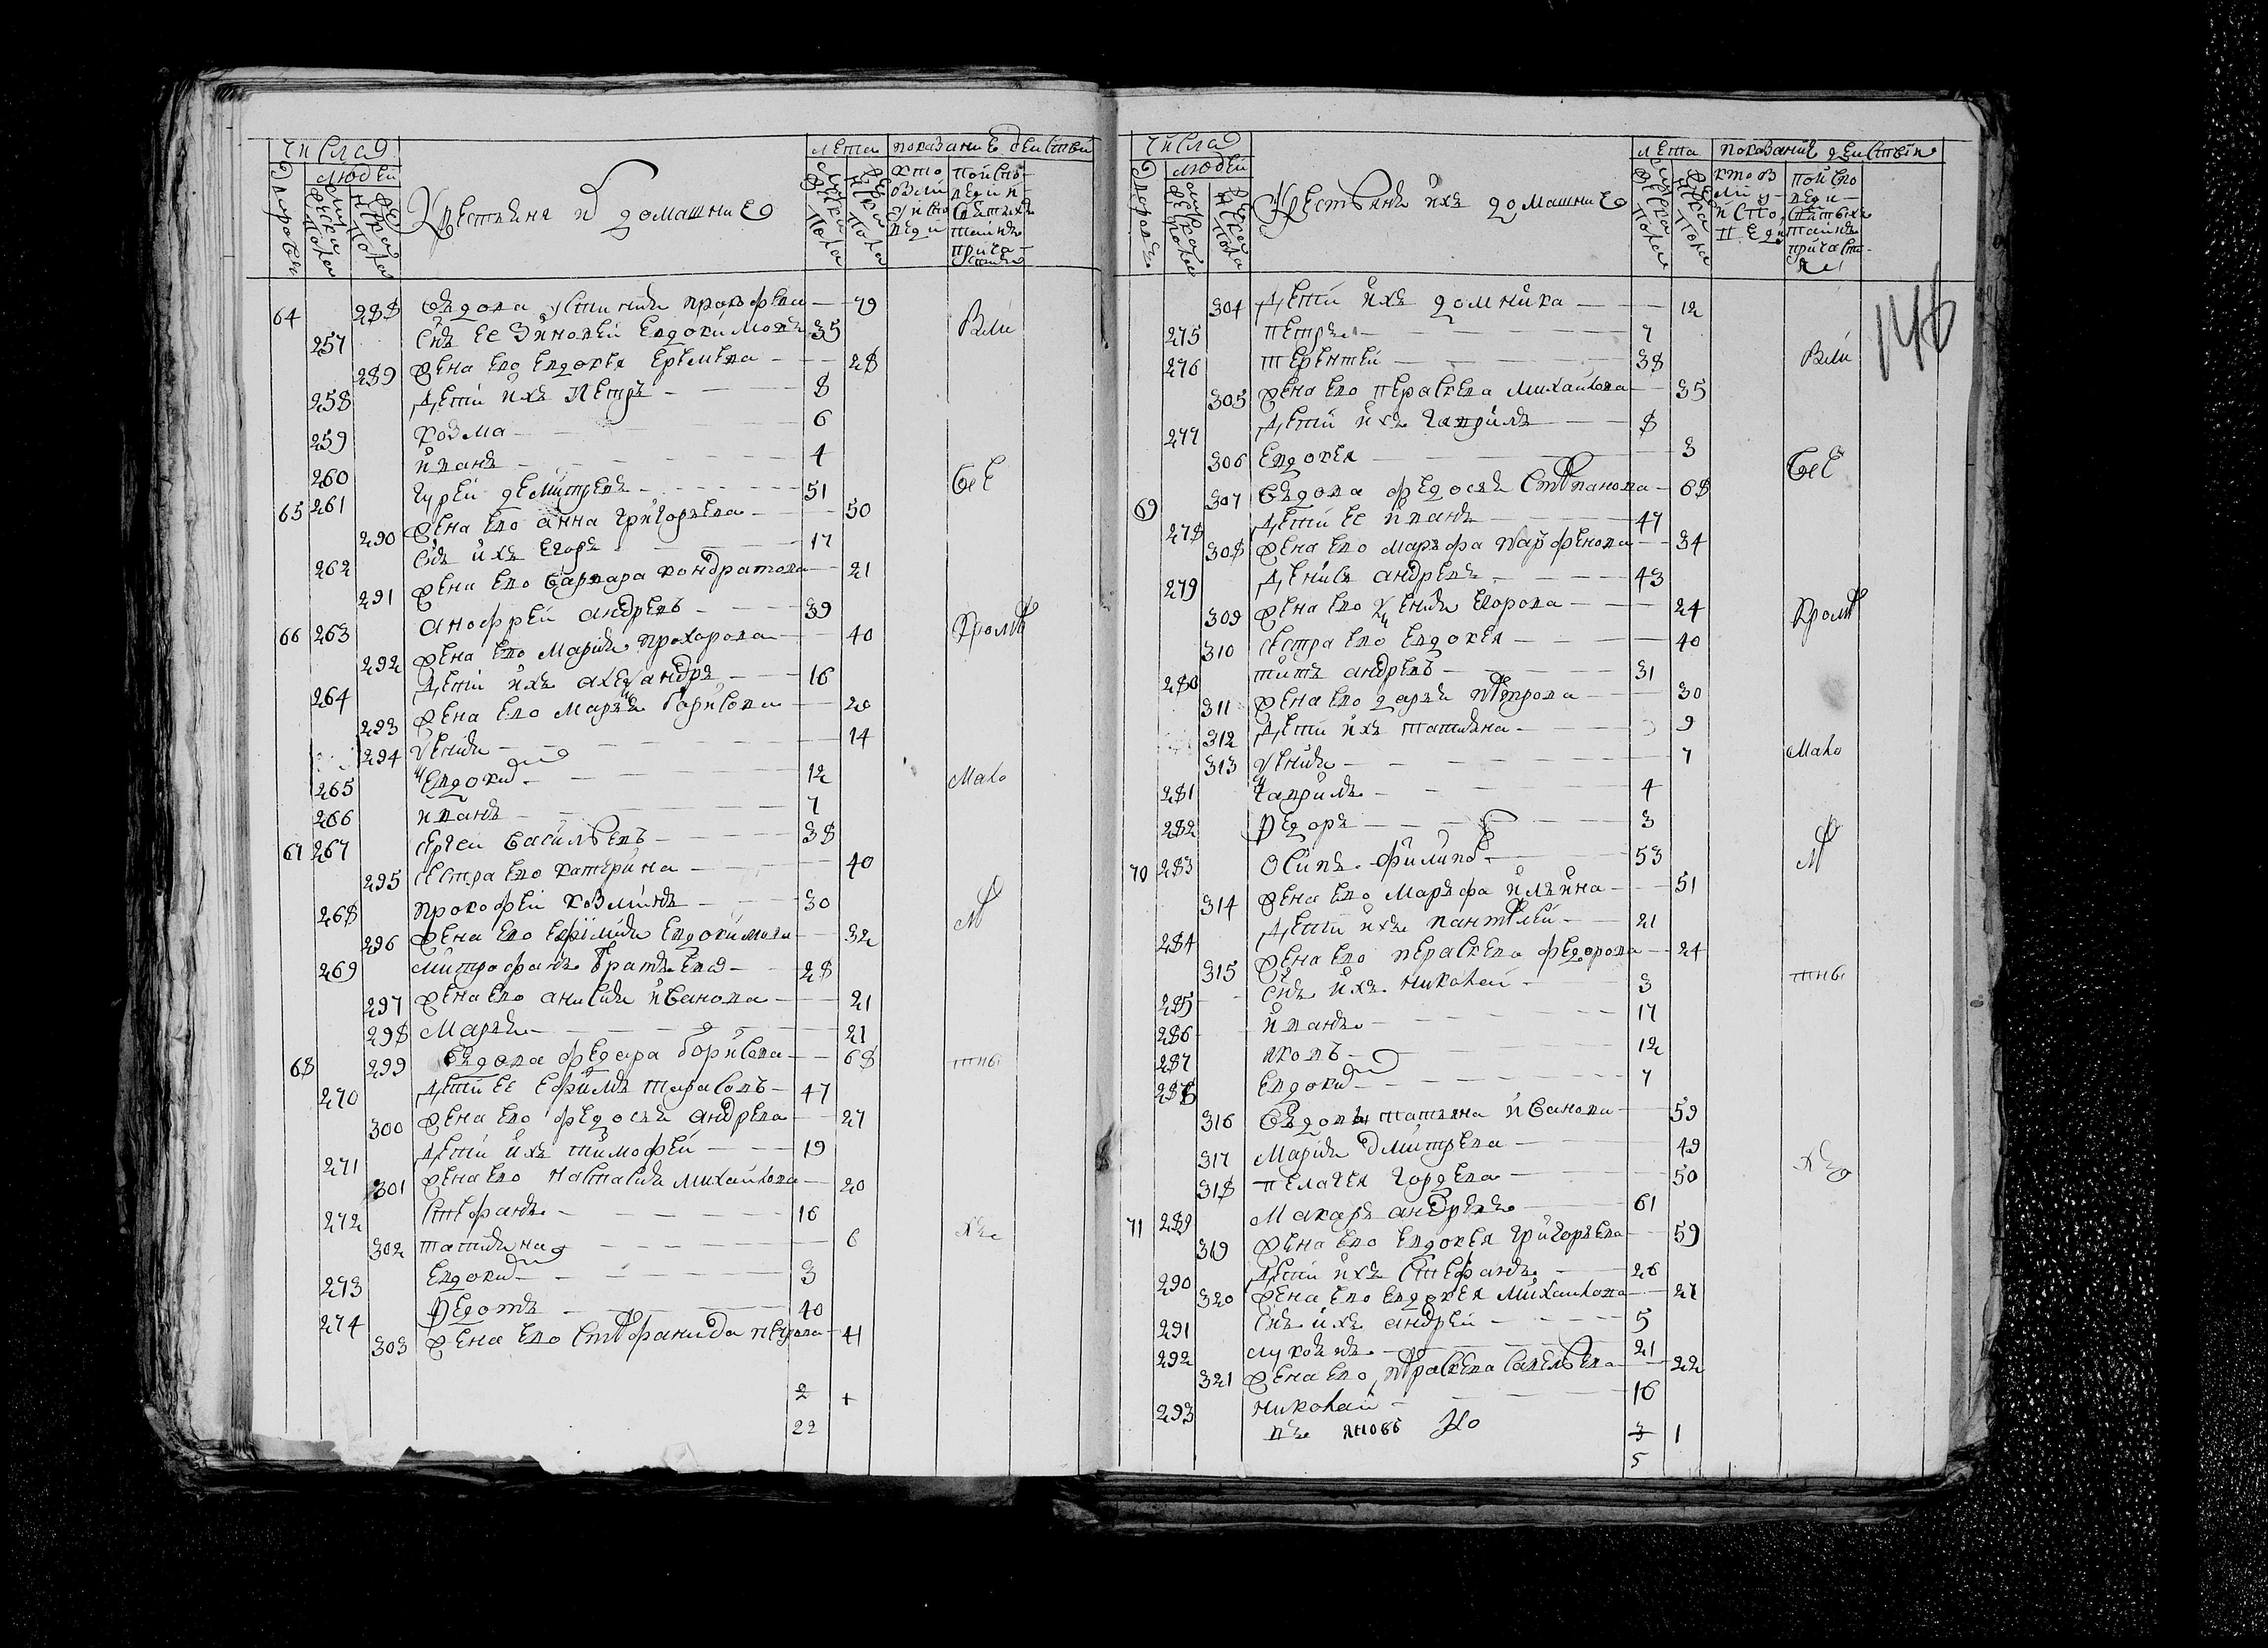 числа
людей
лета
показание действ
дворовъ
мужеска пола
женска пола
Крестьяня и домашние
мужеска пола
женска пола
кто
были
у испо
веди
по испо-
веди и
святыхъ
таинъ
прича-
64 288 вдова устинья прокофева — 79
257 снъ ее Зиновей Евдокимовъ 35 Были
289 жена ево Евдокея Еремева — 28
258 дети ихъ Петръ — 8
259 козма — 6
260 иванъ — 4
65 261 гурей деметревъ — 51 все
290 жена ево анна григорьева — 50
262 снъ ихъ Егоръ — 17
291 жена ево варвара кондратова — 21
66 263 анофрей андревъ — 39 Кроме
292 жена ево Марья прохорова — 40
264 дети ихъ александръ — 16
293 жена ево Марья борисова — 20
294 ксенья — 14
265 Евдоким — 12 мало
266 иванъ — 7
67 267 сергеи васильевъ — 38
295 сестра ево катерина — 40
268 прокофей козминъ — 30 ле
296 жена ево Ефимья Евдокимова — 32
269 митрофанъ братъ Ево — 28
297 жена ево анисья иванова — 21
298 Марья — 21
68 299 вдова федора борисова — 68 тны
270 дети ее Ефимъ тарасовъ — 47
300 жена ево федосья андрева — 27
271 дети ихъ тимофей — 19
301 жена ево настасья михайлова — 20
272 стефанъ — 16
302 татьяна — 6 хъ
273 Евдоким — 3
274 Федотъ — 40
303 жена ево стефанида петрова — 41
2 +
22
числа
людей
лета
показание действи
дворовъ
мужеска пола
женска пола
Крестьяне ихъ домашние
мужеска пола
женска пола
по испо
веди и
святыхъ
таинъ
причасти-
146
304 дети ихъ домника — 12
275 петръ — 7
276 терентей — 38 Были
305 жена ево параскева михайлова — 35
277 дети ихъ гаврилъ — 8
306 Евдокея — 3 все
69 307 вдова федосья степанова — 68
278 дети ее иванъ — 47
308 жена ево марфа парфенова — 34
279 денисъ андревъ — 43
309 жена ево ксенья Егорова — 24 Кроме
310 сестра ево Евдокея — 40
280 титъ андревъ — 31
311 жена ево дарья петрова — 30
312 дети ихъ татьяна — 9
313 ксенья — 7 мало
281 гаврилъ — 4
282 Федоръ — 3
70 283 Осипъ филипов — 53 ле
314 жена ево Марфа ильина — 51
284 дети ихъ пантелей — 21
315 жена ево параскева федорова — 24
285 снъ ихъ николай — 3 тны
286 иванъ — 17
287 яковъ — 12
288 Евдоким — 7
316 вдовы татьяна иванова — 59
317 Марья дмитрева — 49
318 пелагея гордева — 50 хъ
71 289 Макаръ андревъ — 61
319 жена ево Евдокея григорьева — 59
290 дети ихъ стефанъ — 26
320 жена ево Евдокея михайлова — 27
291 снъ ихъ андрей — 5
292 лукоянъ — 21
321 жена ево параскева савельева — 22
293 николай — 16
3 1
5